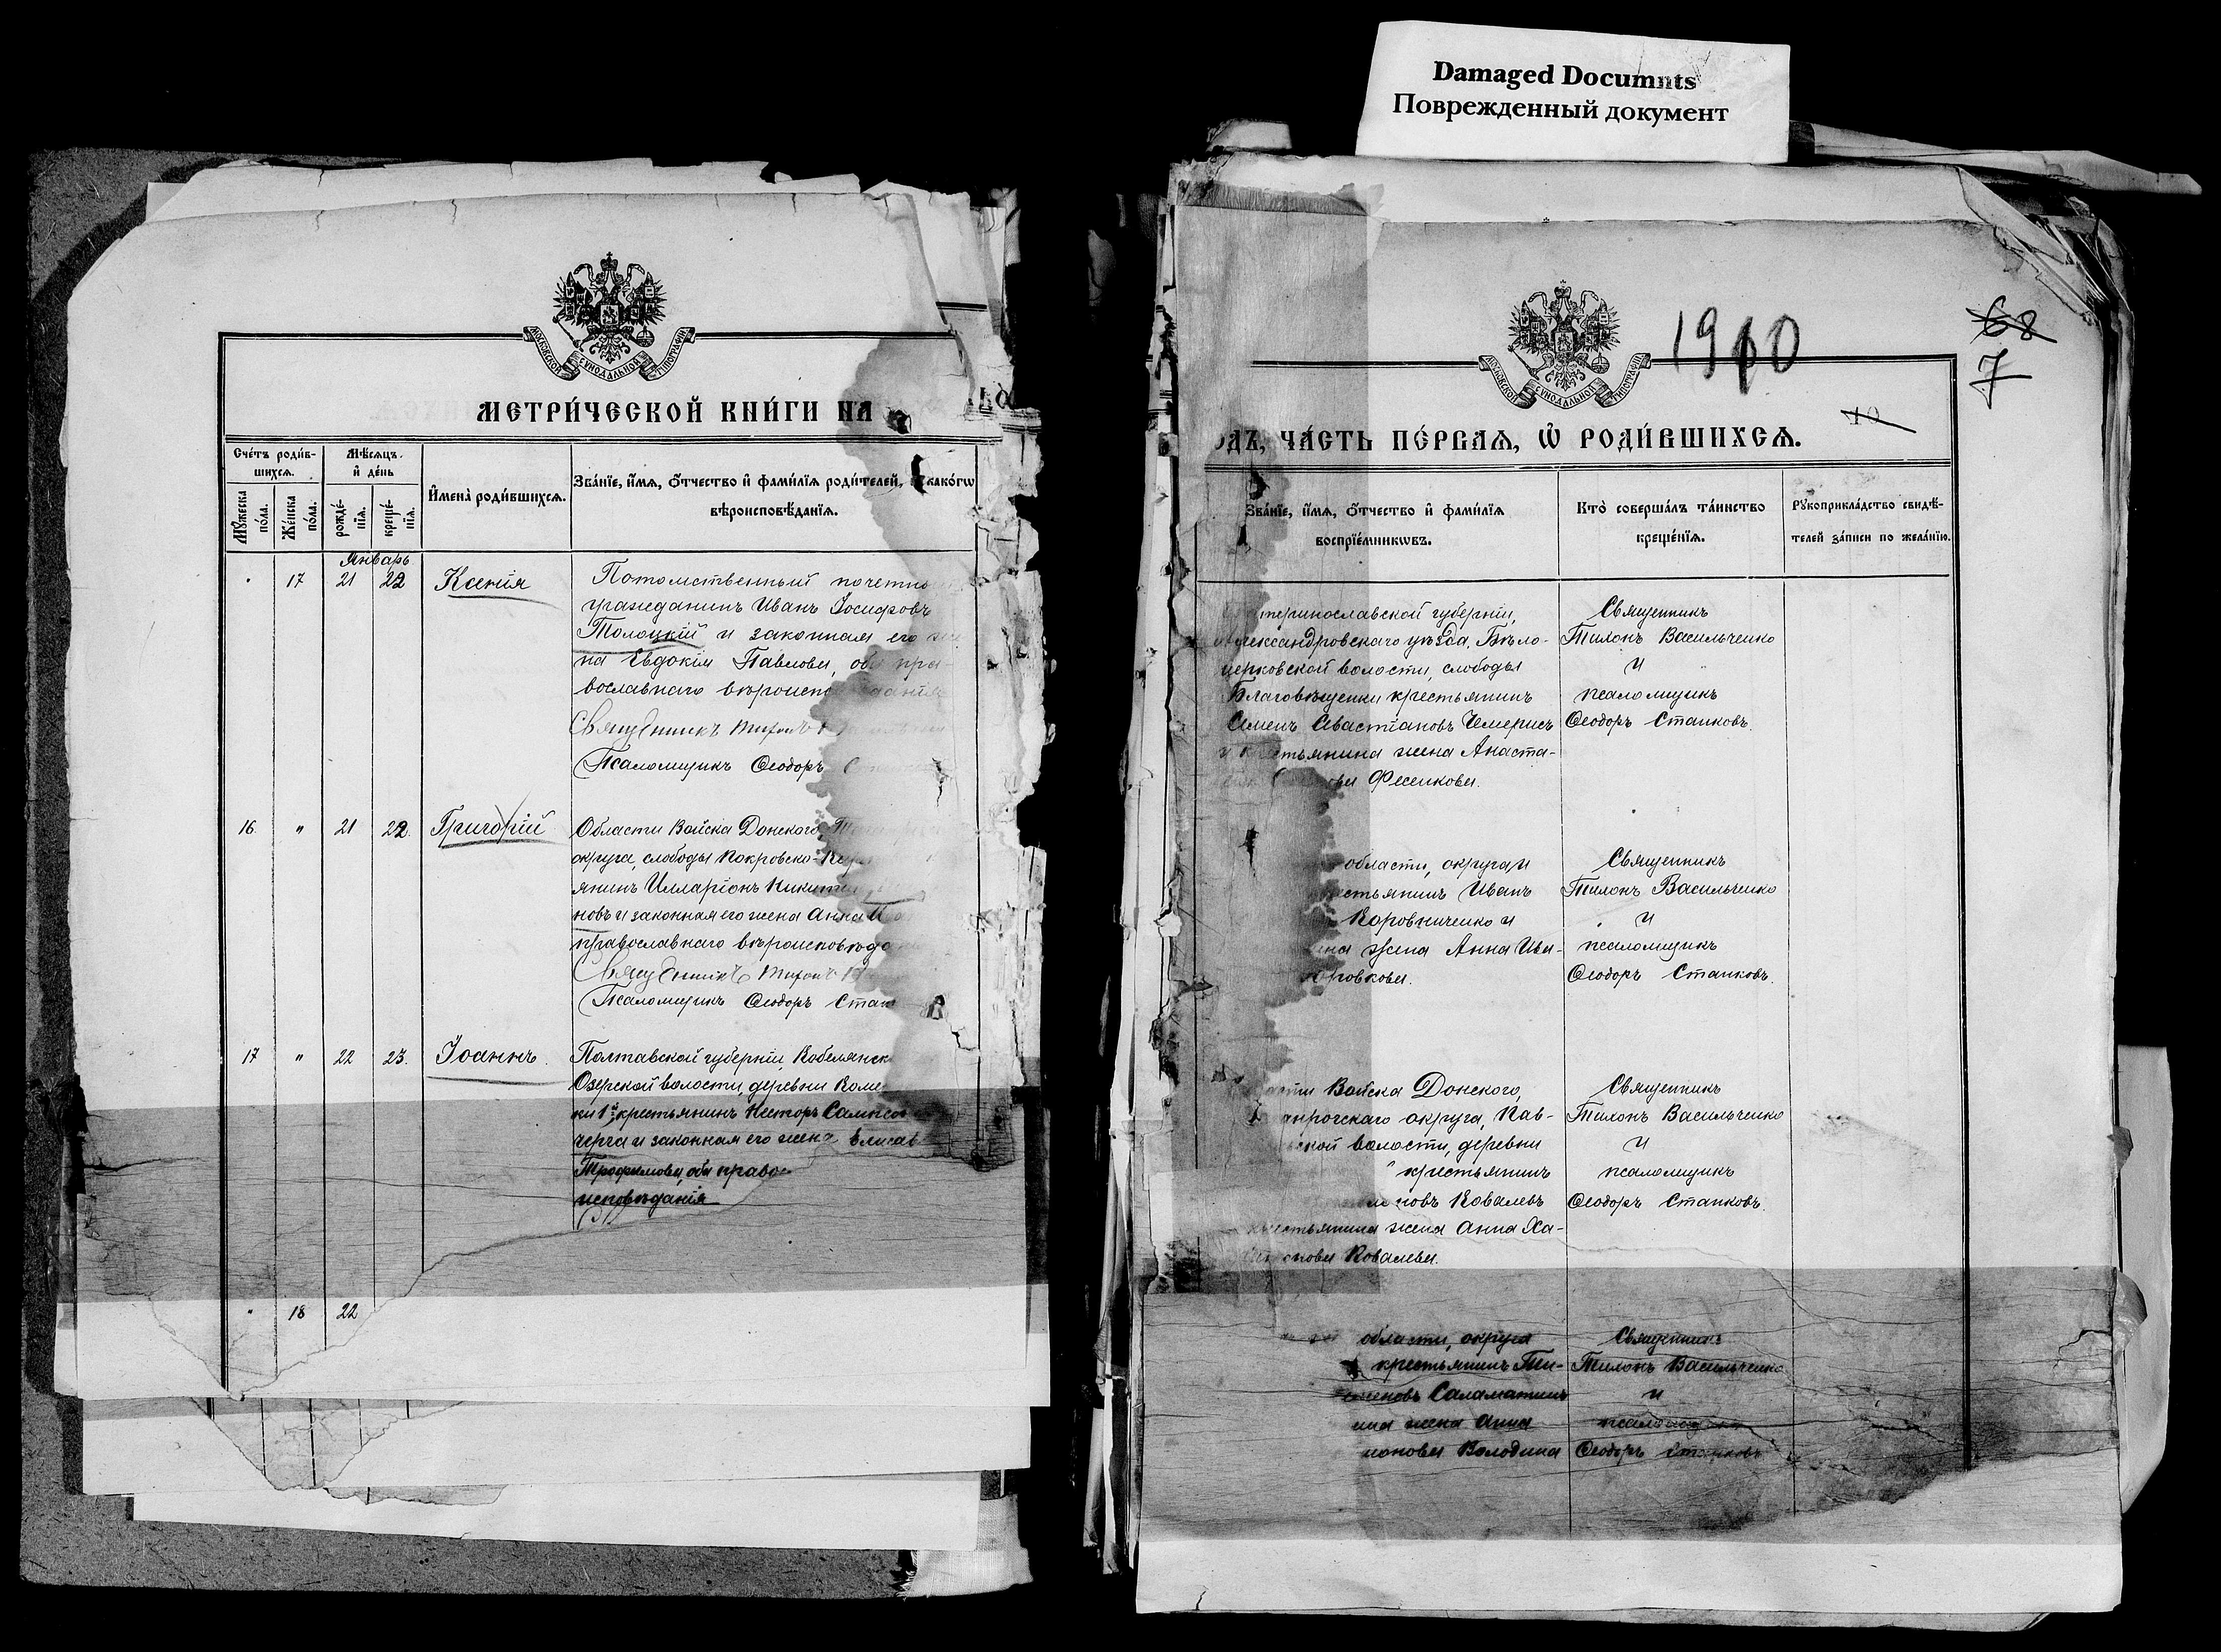 Damaged Documnts
Поврежденный документ
МОСКОВСКОЙ СѴНОДАЛЬНОЙ ТИПОГРАФІИ
МЕТРИ́ЧЕСКОЙ КНИ́ГИ НА
Сче́тъ роди́в-
шихсѧ.
Мѣ́сѧцъ
и҆ де́нь
Мꙋ́жеска по́ла.
Же́нска по́ла.
рожде́-нїѧ.
креще́-нїѧ.
И҆мена̀ роди́вшихсѧ.
Зва́нїе, и҆́мѧ, ѻ҆́тчество и҆ фами́лїѧ роди́телей, и҆ како́гѡ
вѣроисповѣ́данїѧ.
Январь
17 21 22 Ксенія
Потомственный почетны
гражданинъ Иванъ Іосифовъ
Толоцкій и законная его же
на Евдокія Павлова, оба пра-
вославнаго вѣроиспо
Священникъ Тихонъ
Псаломщикъ Ѳеодоръ
16. " 21 22. Григорій
Области Войска Донского,
округа, слободы Покровско-
янинъ Илларіонъ Никитинъ
новъ и законная его жена Анна
православнаго вѣроисповѣда
Священникъ Тихонъ
Псаломщикъ Ѳеодоръ Стан
17 " 22 23. Іоаннъ.
Полтавской губерніи, Кобелянск
Озерской волости, деревни
ки 1й, крестьянинъ Несторъ
черга и законная его жена Елисав
Трофимова, оба право
исповѣданія
" 18 22
1910
68
7
10
МОСКОВСКОЙ СѴНОДАЛЬНОЙ ТИПОГРАФІИ
ОДЪ, ЧА́СТЬ ПЕ́РВАѦ, Ѽ РОДИ́ВШИХСѦ.
Зва́нїе, и҆́мѧ, ѻ҆́тчество и҆ фами́лїѧ
воспрїе́мникѡвъ.
Кто̀ соверша́лъ та́инство
креще́нїѧ.
Рꙋкоприкла́дство свидѣ́-
телей за́писи по жела́нїю.
теринославской губерніи,
Александровскаго уѣзда, Бѣло-
церковской волости, слободы
Благовѣщенки крестьянинъ
Семенъ Севастіановъ Чемерисъ
стьянина жена Анаста-
ва Фесенкова.
Священникъ
Тихонъ Васильченко
и
псаломщикъ
Ѳеодоръ Станковъ.
области, округа, и
рестьянинъ Иванъ
Коровниченко и
жена Анна Ива-
Священникъ
Тихонъ Васильченко
и
псаломщикъ
Ѳеодоръ Станковъ.
асти Войска Донского,
анрогскаго округа, Пав-
ской волости, деревни
крестьянинъ
новъ Ковалевъ
крестьянина жена Анна Ха-
нова Ковалева.
Священникъ
Тихонъ Васильченко
и
псаломщикъ
Ѳеодоръ Станковъ.
области, округа
крестьянинъ Ти-
Саламатинъ
жена Анна
нова Володина
Священникъ
Тихонъ Васильченко
и
псаломщикъ
Ѳеодоръ Станковъ